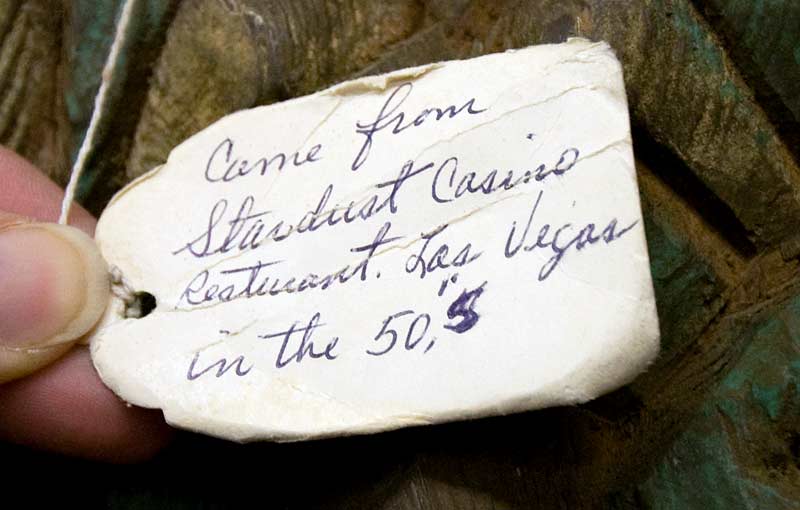 Came from
Stardust Casino
Resturant. Las Vegas
in the 50,"s